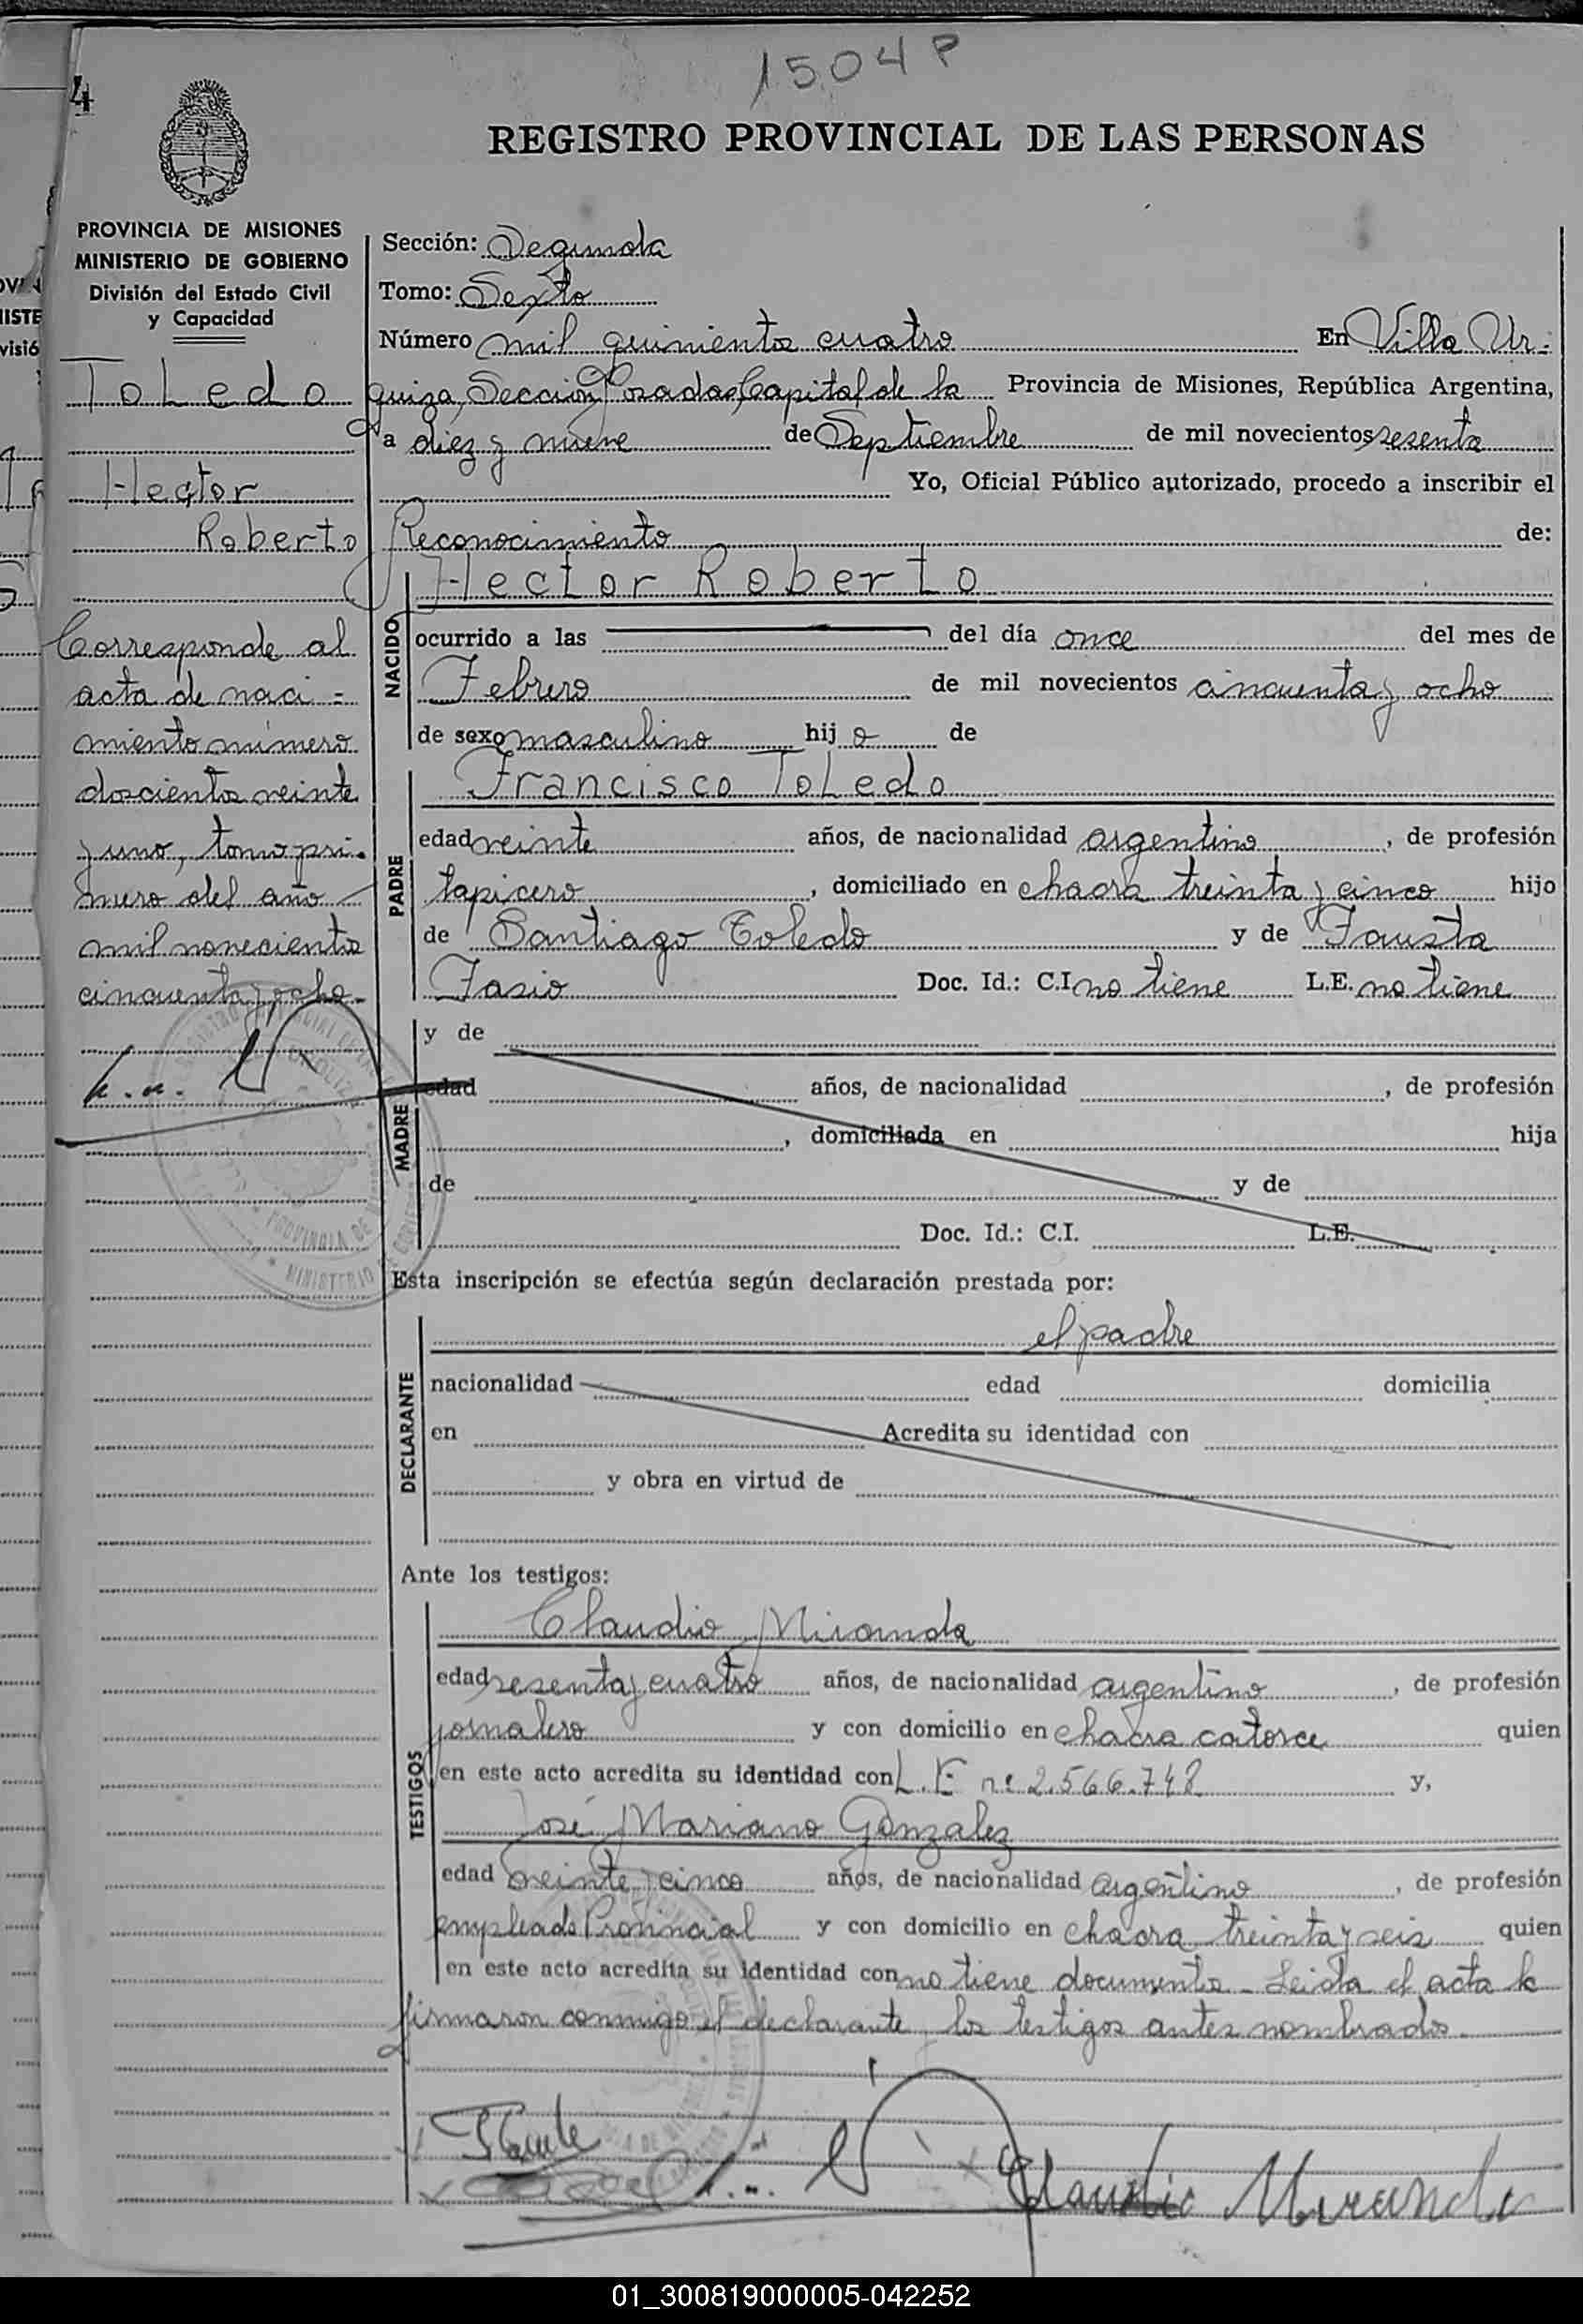 1504 P
4
REGISTRO PROVINCIAL DE LAS PERSONAS
PROVINCIA DE MISIONES
MINISTERIO DE GOBIERNO
División del Estado Civil
y Capacidad
Toledo
Hector
Roberto
Corresponde al
acta de naci =
miento número
doscientos veinte
y uno, tomo pri-
mero del año
mil novecientos
cincuenta y ocho.
Sección: Segunda
Tomo: Sexto
Número mil quinientos cuatro En Villa Ur-
quiza, Sección Posadas, Capital de la Provincia de Misiones, República Argentina,
a diez y nueve de Septiembre de mil novecientos sesenta
Yo, Oficial Público autorizado, procedo a inscribir el
Reconocimiento de:
NACIDO
Hector Roberto
ocurrido a las del día once del mes de
Febrero de mil novecientos cincuenta y ocho
de sexo masculino hijo de
PADRE
Francisco Toledo
edad veinte años, de nacionalidad argentino, de profesión
tapicero, domiciliado en chacra treinta y cinco hijo
de Santiago Toledo y de Fausta
Fasio Doc. Id.: C.I no tiene L.E. no tiene
MADRE
y de
edad años, de nacionalidad , de profesión
, domiciliada en hija
de y de
Doc. Id.: C.I. L.E.
Esta inscripción se efectúa según declaración prestada por:
DECLARANTE
el padre
nacionalidad edad domicilia
en Acredita su identidad con
y obra en virtud de
Ante los testigos:
TESTIGOS
Claudio Miranda
edad sesenta y cuatro años, de nacionalidad argentino, de profesión
jornalero y con domicilio en chacra catorce quien
en este acto acredita su identidad con L.E nº 2.566.748 y,
José Mariano Gonzalez
edad veinte y cinco años, de nacionalidad argentino, de profesión
empleado Provincial y con domicilio en chacra treinta y seis quien
en este acto acredita su identidad con no tiene documentos - Leida el acta la
firmaron conmigo el declarante y los testigos antes nombrados.
Claudio Miranda
01_300819000005-042252